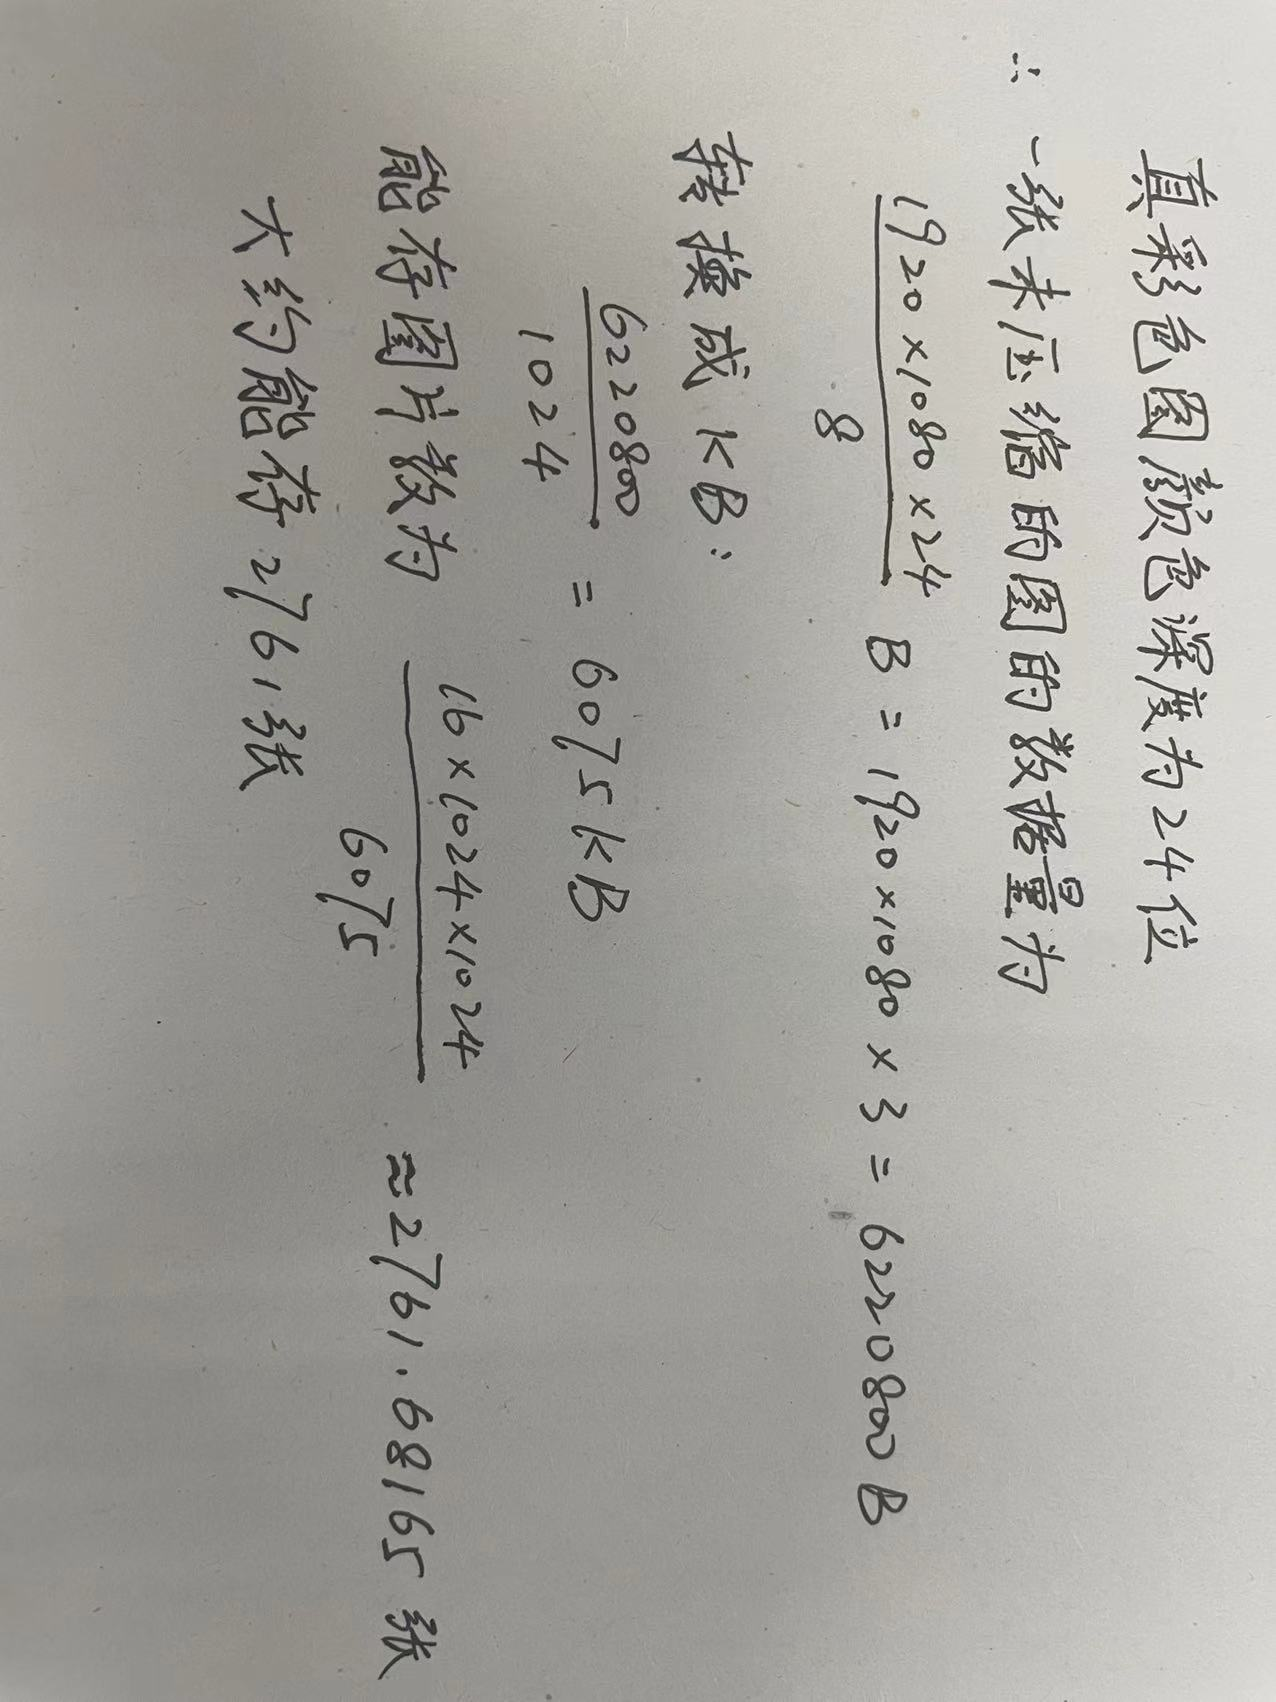 真彩色图颜色深度为24位
∴ 一张未压缩的图的数据量为
1920×1080×24
8
B = 1920×1080×3 = 6220800B
转换成KB:
6220800
1024
= 6075KB
能存图片数为
16×1024×1024
6075
≈2761.68165张
大约能存2761张